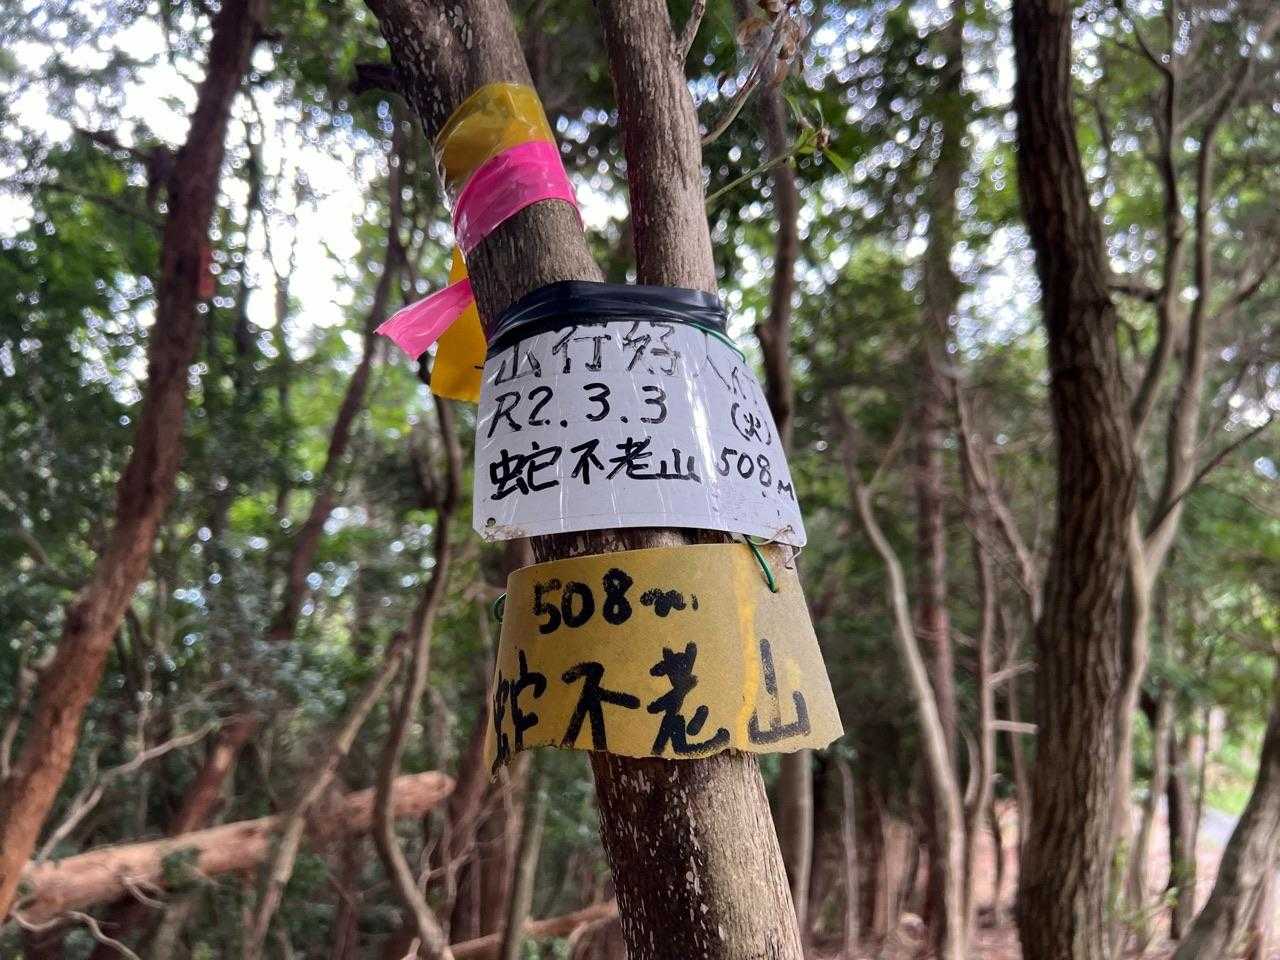 山行好人
R2.3.3 (火)
蛇不老山 508m
508m
蛇不老山